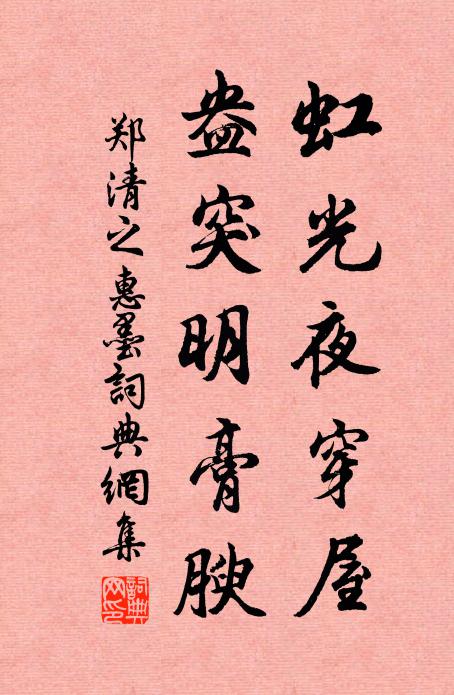 虹光夜穿屋
盎突明膏腴
郑清之惠墨詞典網集
詞典网印